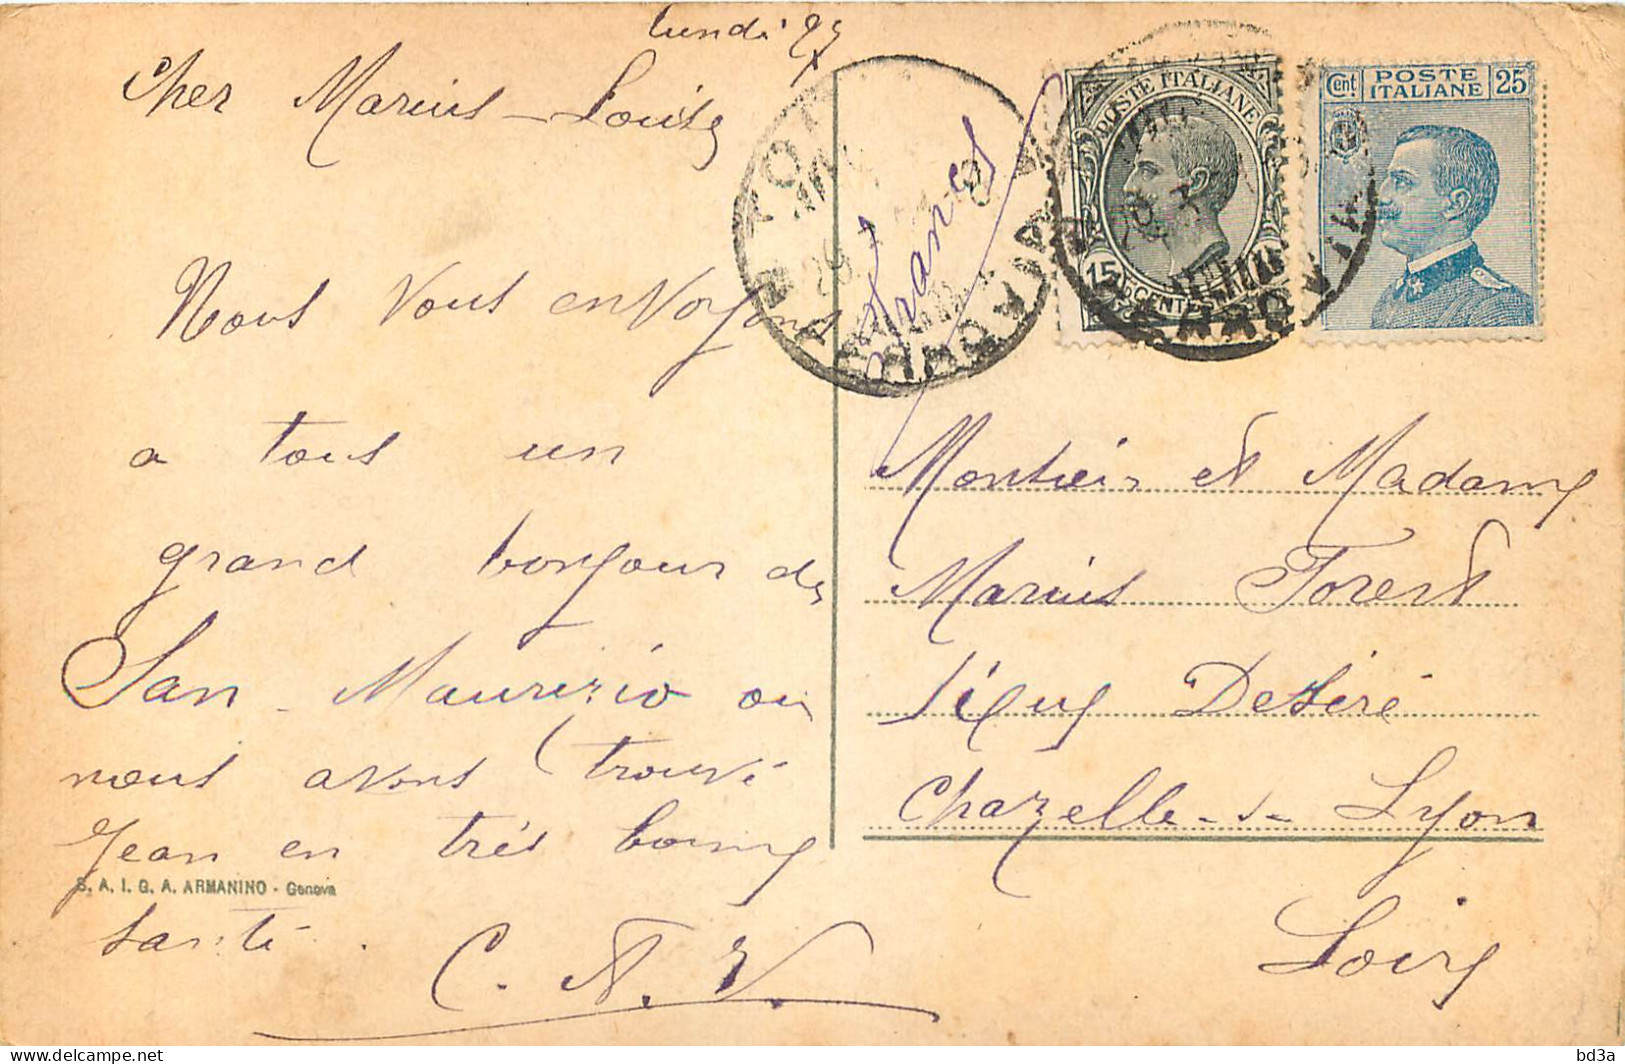 lundi 27
Cher Marius - Louise
Nous vous envoyons
a tous un
grand bonjour de
San Maurizio ou
nous avons trouvé
Jean en très bonne
santé.
C. N. V.
S. A. I. G. A. ARMANINO - Genova
France
POSTE ITALIANE
15 CENTES. 15
Cent POSTE ITALIANE 25
Monsieur et Madame
Marius Forest
Desiré
Chazelle - s - Lyon
Loire
bd3a